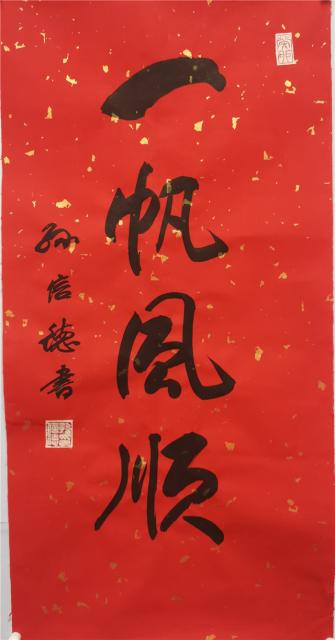 一帆風順
孙信德書